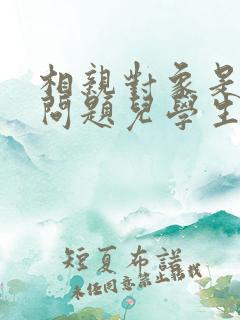 相親對象是
問題兒學生
短夏布諾
未經同意禁止轉載